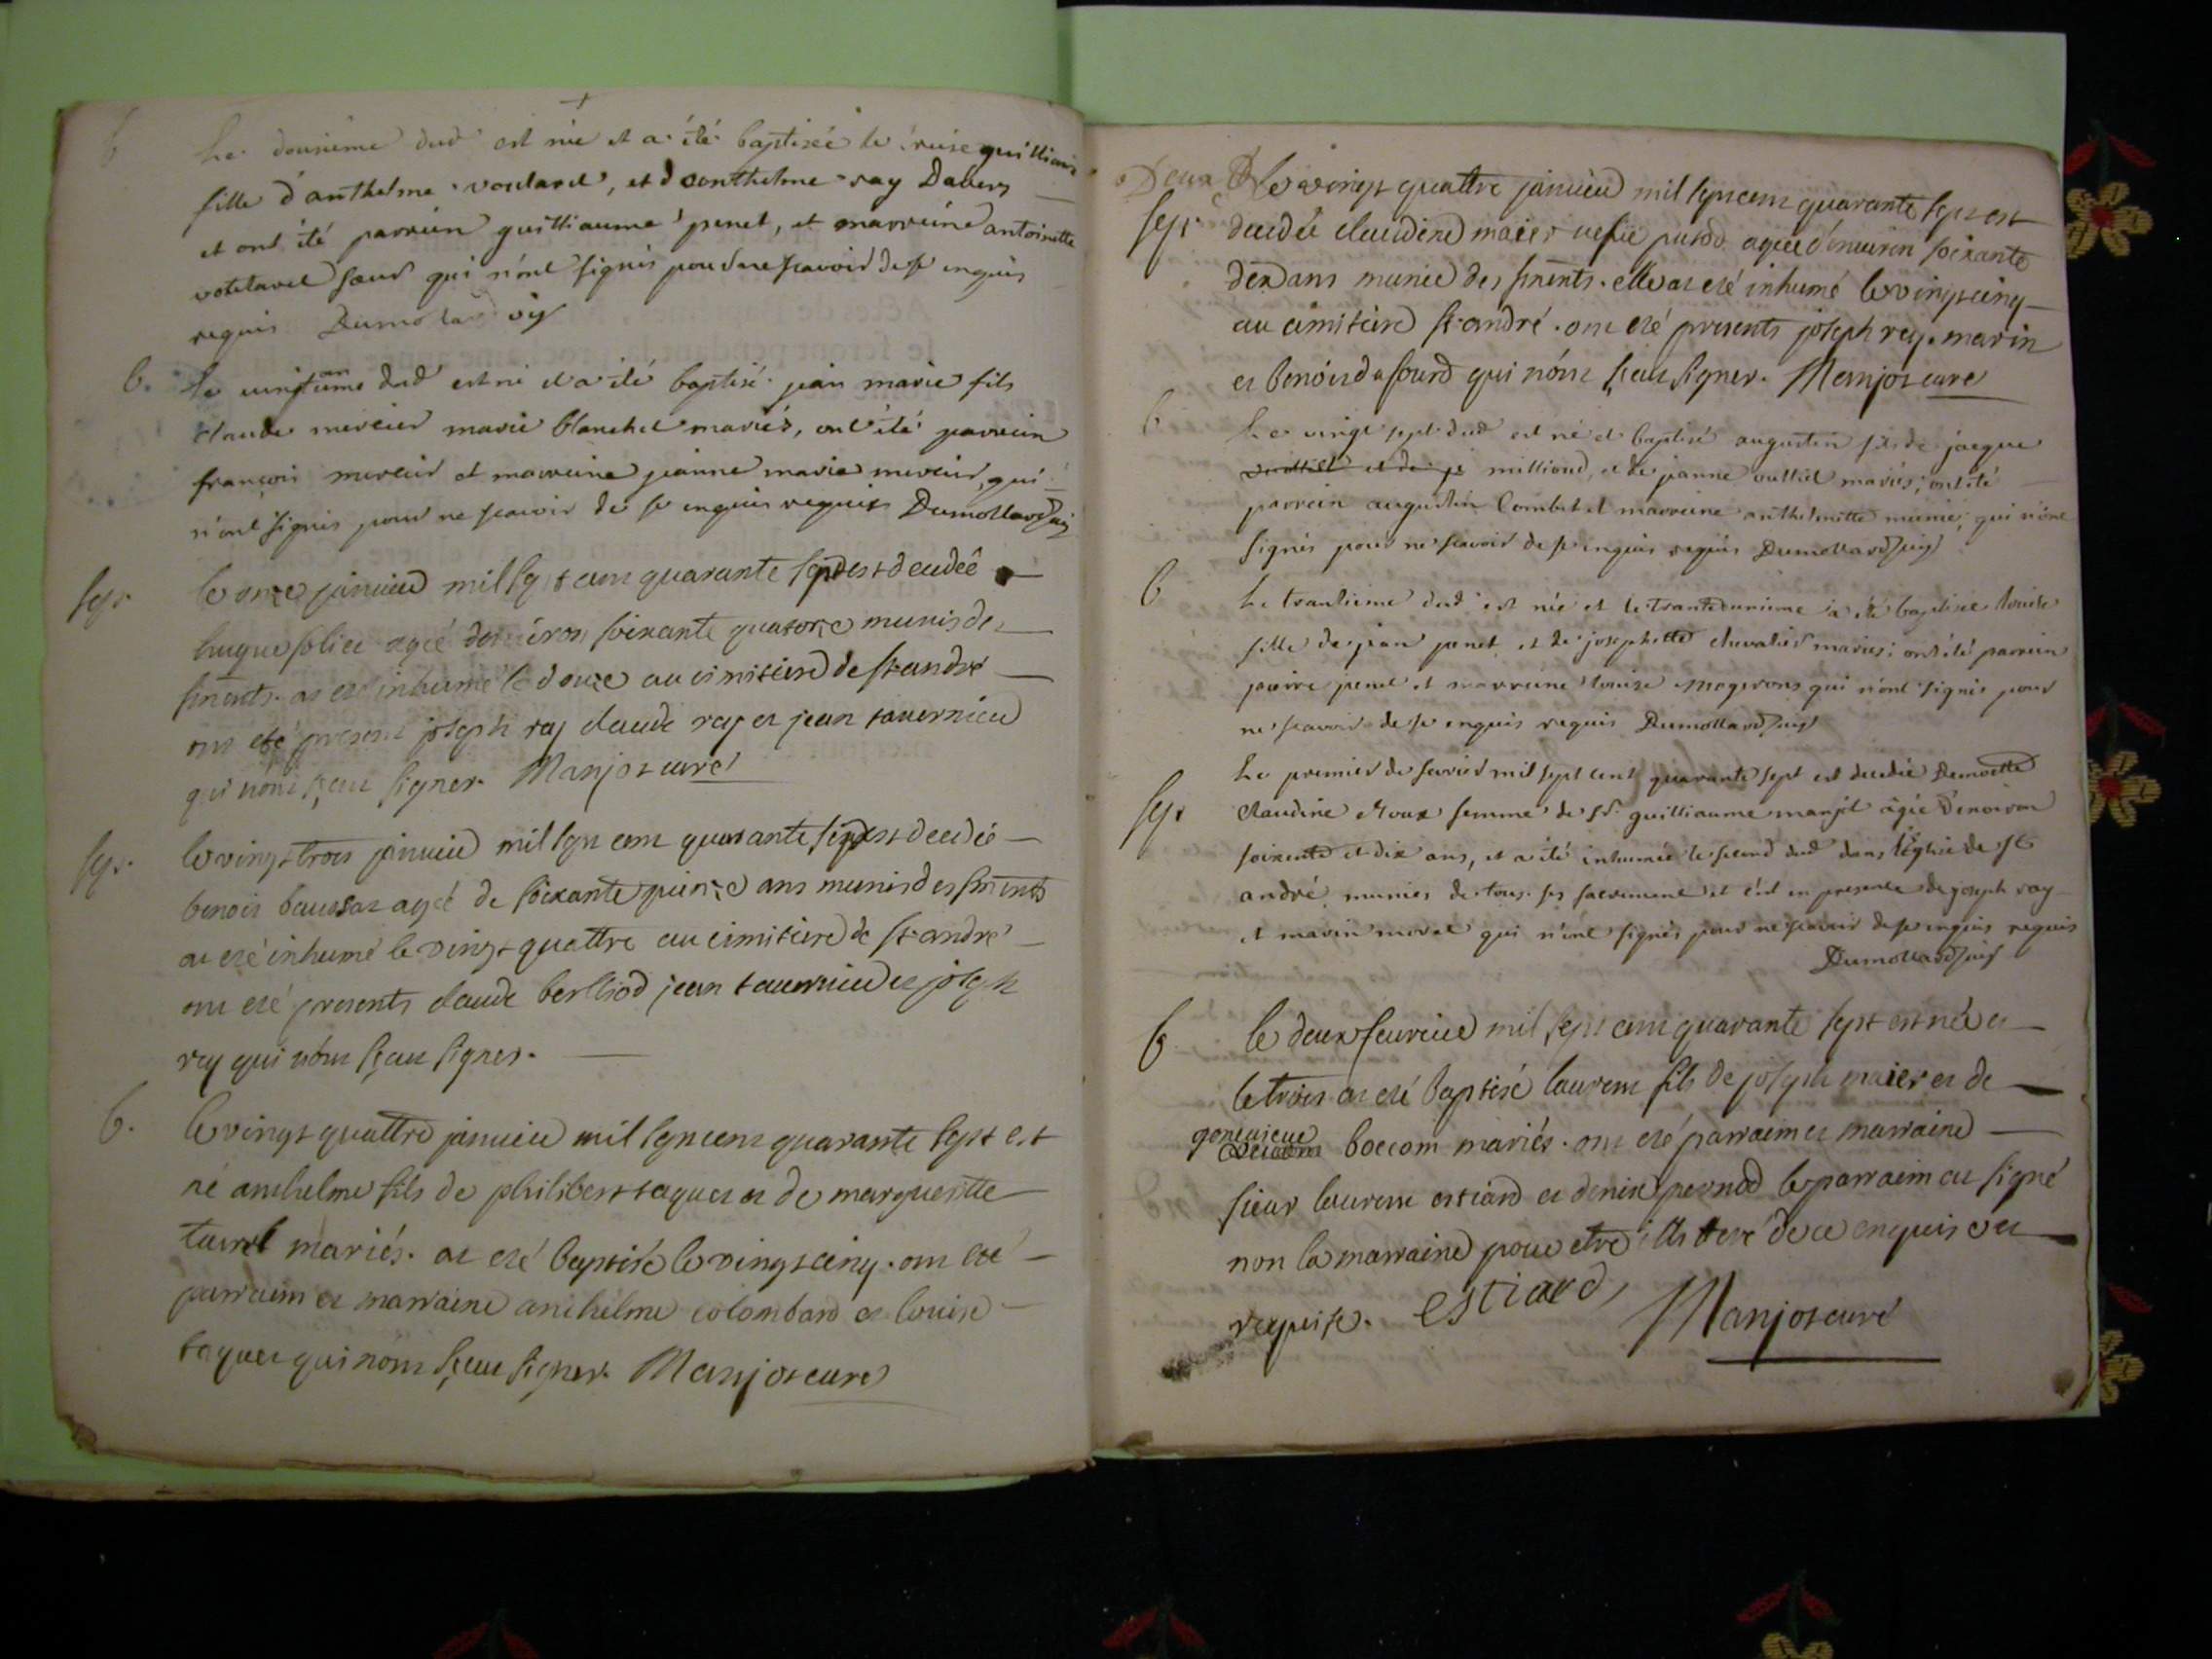 b
Le dousieme dud est née et a été baptisée le
fille d'anthelme voularel, et d anthelme ray Davery
et ont été parrein guilliaume penet, et marreine antoinette
soeur qui n'ont signés pour ne scavoir de ce enquis
requis Dumollard vic
b.
Le dud est né et a été baptisé jean marie fils
claude mercier marie blanchet mariés, ont été parrein
françois mercier et marreine jeanne marie mercier, qui
n'ont signés pour ne scavoir de ce enquis requis Dumollard vic
sep.
le onze janvier mil sept cent quarante sept est decedé
hugue agé denviron soixante quatorze munis des
sments. at eté inhumé le douze au cimitiere de st andré
ont eté present joseph ray claude ray et jean tavernier
qui n'ont sçeu signer. Manjot curé
sep.
le vingt trois janvier mil sept cent quarante sept est decedé
benoit agé de soixante quinze ans munis des sments
at eté inhumé le vingt quattre au cimitiere de st andré
ont eté presents claude berlliod jean tavernier et joseph
ray qui n'ont sçeu signer.
b.
le vingt quattre janvier mil sept cent quarante sept est
né anthelme fils de philibert taquet et de margueritte
mariés. at eté baptisé le vingt cinq. ont eté
parraim et marraine anthelme colombard et louise
taquet qui n'ont sçeu signer. Manjot curé
Deux
sep.
le vingt quattre janvier mil sept cent quarante sept est
decedée claudine maier agée denviron soixante
dix ans munie des sments. elle at eté inhumé le vingt cinq
au cimitiere st andré. ont eté presents joseph ray. marin
et benoit dufourd qui n'ont sçeu signer. Manjot curé
b
Le vingt sept dud est né et baptisé augustin fils de jacque
et de je milliond, et de janne vulliet mariés; ont été
parrein augustin Combet et marreine anthelmette qui n'ont
signés pour ne scavoir de ce enquis requis Dumollard vic
b
Le trantieme dud est née et le trante unieme a été baptisée louise
fille de jean penet et de josephette chevalier mariés; ont été parrein
pierre penet et marreine louise qui n'ont signés pour
ne scavoir de ce enquis requis Dumollard vic
sep.
Le premier de fevrier mil sept cent quarante sept est decedée Demoelle
claudine Roux femme de sr. guilliaume manjot agée d'environ
soixente et dix ans, et a été inhumée le second dud dans l'églize de st
andré, munies de tous ses sacrement et c'est en presence de joseph ray
et marin morel qui n'ont signés pour ne scavoir de ce enquis requis
Dumollard vic
b
le deux feuvrier mil sept cent quarante sept est né et
le trois at eté baptisé laurent fils de joseph maier et de
genevieve boccom mariés. ont eté parraim et marraine
sieur laurent estiard et denise pernod le parraim at signé
non la marraine pour etre de ce enquis et
requise. estiard, Manjot curé